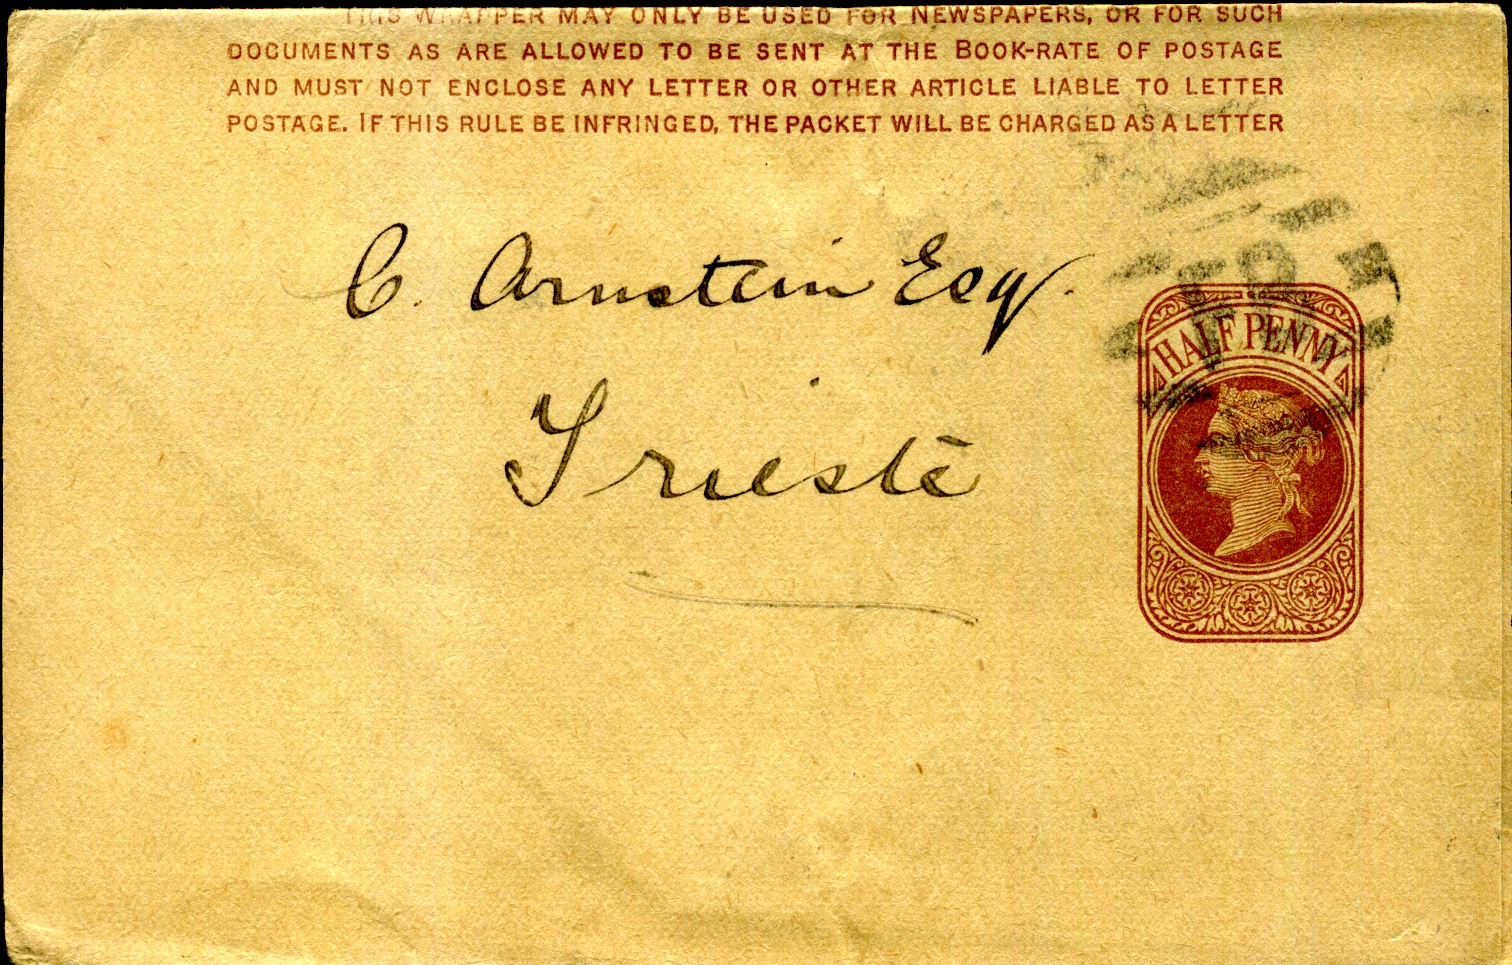 THIS WRAPPER MAY ONLY BE USED FOR NEWSPAPERS, OR FOR SUCH
DOCUMENTS AS ARE ALLOWED TO BE SENT AT THE BOOK-RATE OF POSTAGE
AND MUST NOT ENCLOSE ANY LETTER OR OTHER ARTICLE LIABLE TO LETTER
POSTAGE. IF THIS RULE BE INFRINGED, THE PACKET WILL BE CHARGED AS A LETTER
C. Arnstein Esq.
Trieste
HALFPENNY